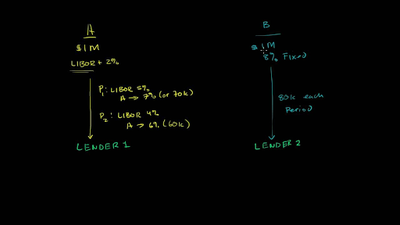 A
$1M
LIBOR + 2%
P1: LIBOR 5%
A → 7% (or 70K)
P2: LIBOR 4%
A → 6% (60K)
LENDER 1
B
$1M
8% Fixed
80K each
Period
LENDER 2